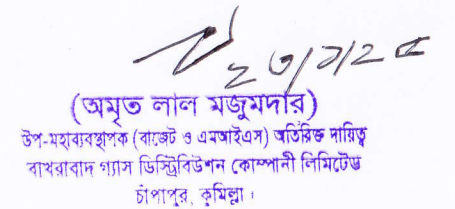 (অমৃত লাল মজুমদার)
উপ-মহাব্যবস্থাপক (বাজেট ও এমআইএস) অতিরিক্ত দায়িত্ব
বাখরাবাদ গ্যাস ডিস্ট্রিবিউশন কোম্পানী লিমিটেড
চাঁপাপুর, কুমিল্লা।